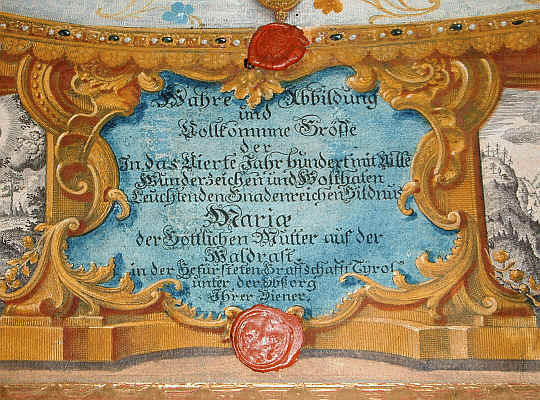 Wahre Abbildung
und
Vollkomme Grösse
der
In das Vierte Jahr hundert mit Alle
Wunderzeichen und Wolthaten
Leuchtenden Gnadenreichen Bildnuß
Mariæ
der Göttlichen Mutter auf der
Waldrast
in der Gefürsteten Graffschafft Tyrol
unter der Obsorg
Ihrer Diener